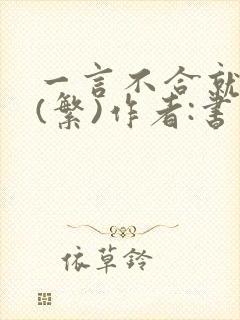 一言不合就
(繁)作者:書
依草鈴